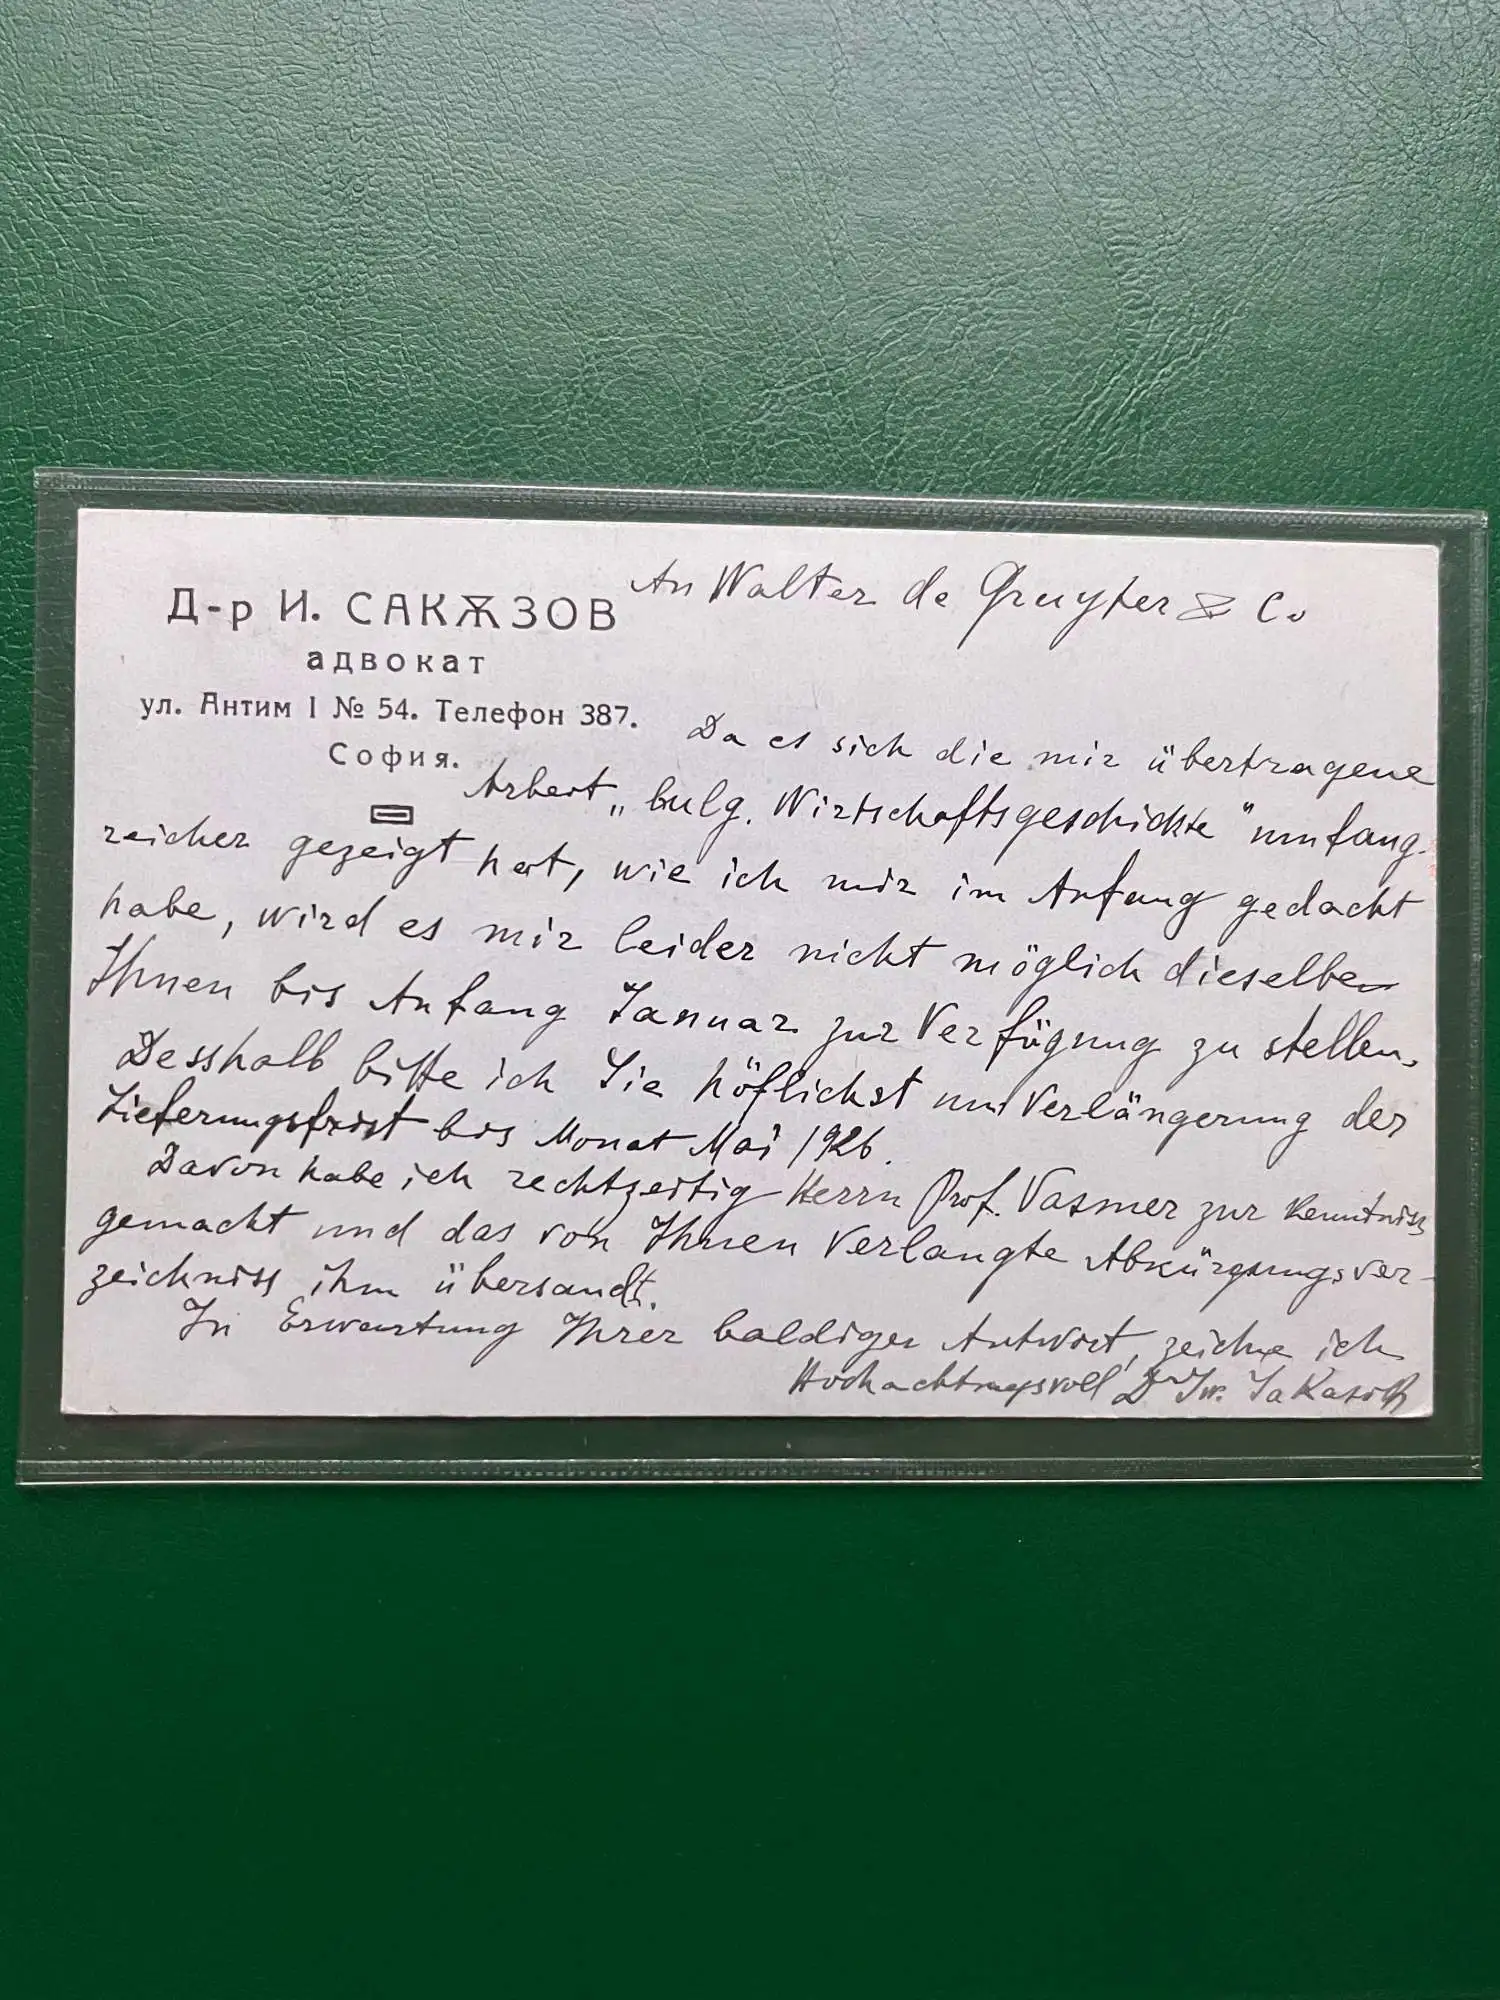 Д-р И. САКѪЗОВ
адвокат
ул. Антим I № 54. Телефон 387.
София.
An Walter de Gruyter & Co
Da es sich die mir übertragene
Arbeit „bulg. Wirtschaftsgeschichte“ umfang-
reicher gezeigt hat, wie ich mir im Anfang gedacht
habe, wird es mir leider nicht möglich dieselben
Ihnen bis Anfang Januar zur Verfügung zu stellen.
Desshalb bitte ich Sie höflichst um Verlängerung der
Lieferungsfrist bis Monat Mai 1926.
Davon habe ich rechtzeitig Herrn Prof. Vasmer zur Kenntniss
gemacht und das von Ihnen verlangte Abkürzungsver-
zeichniss ihm übersandt.
In Erwartung Ihrer baldiger Antwort, zeichne ich
Hochachtungsvoll Dr Iw. Sakasoff